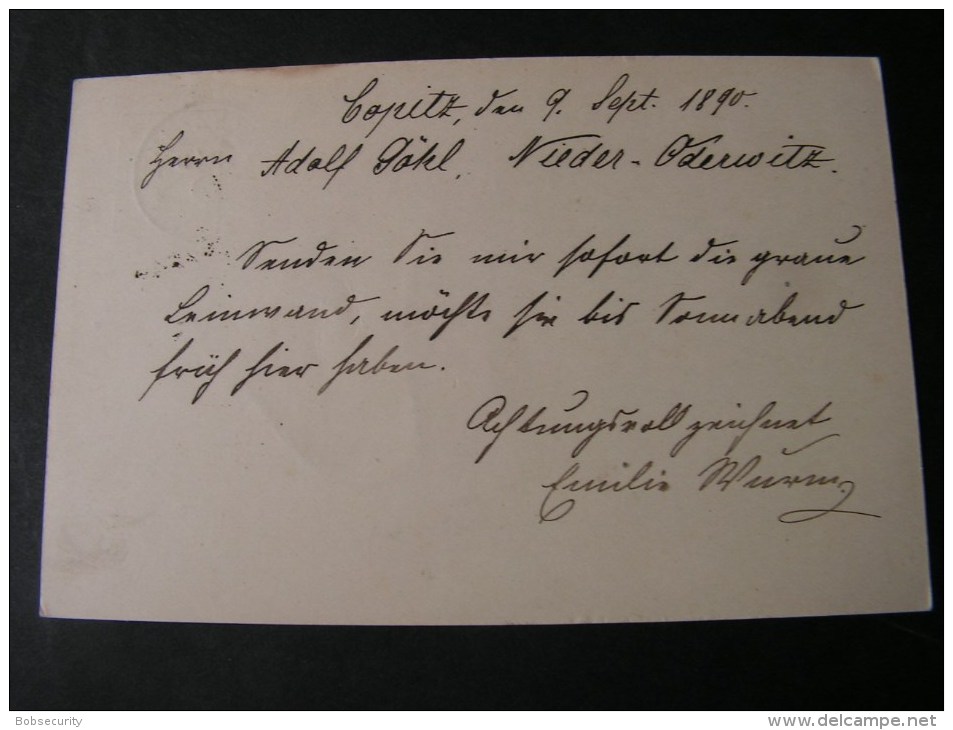 Copitz, den 9. Sept. 1890.
Herrn Adolf Gökl, Nieder-Oderwitz.
Senden Sie mir sofort die graue
Leinwand, möchte sie bis Sonnabend
früh hier haben.
Achtungsvoll zeichnet
Emilie Wurm
Bobsecurity
www.delcampe.net